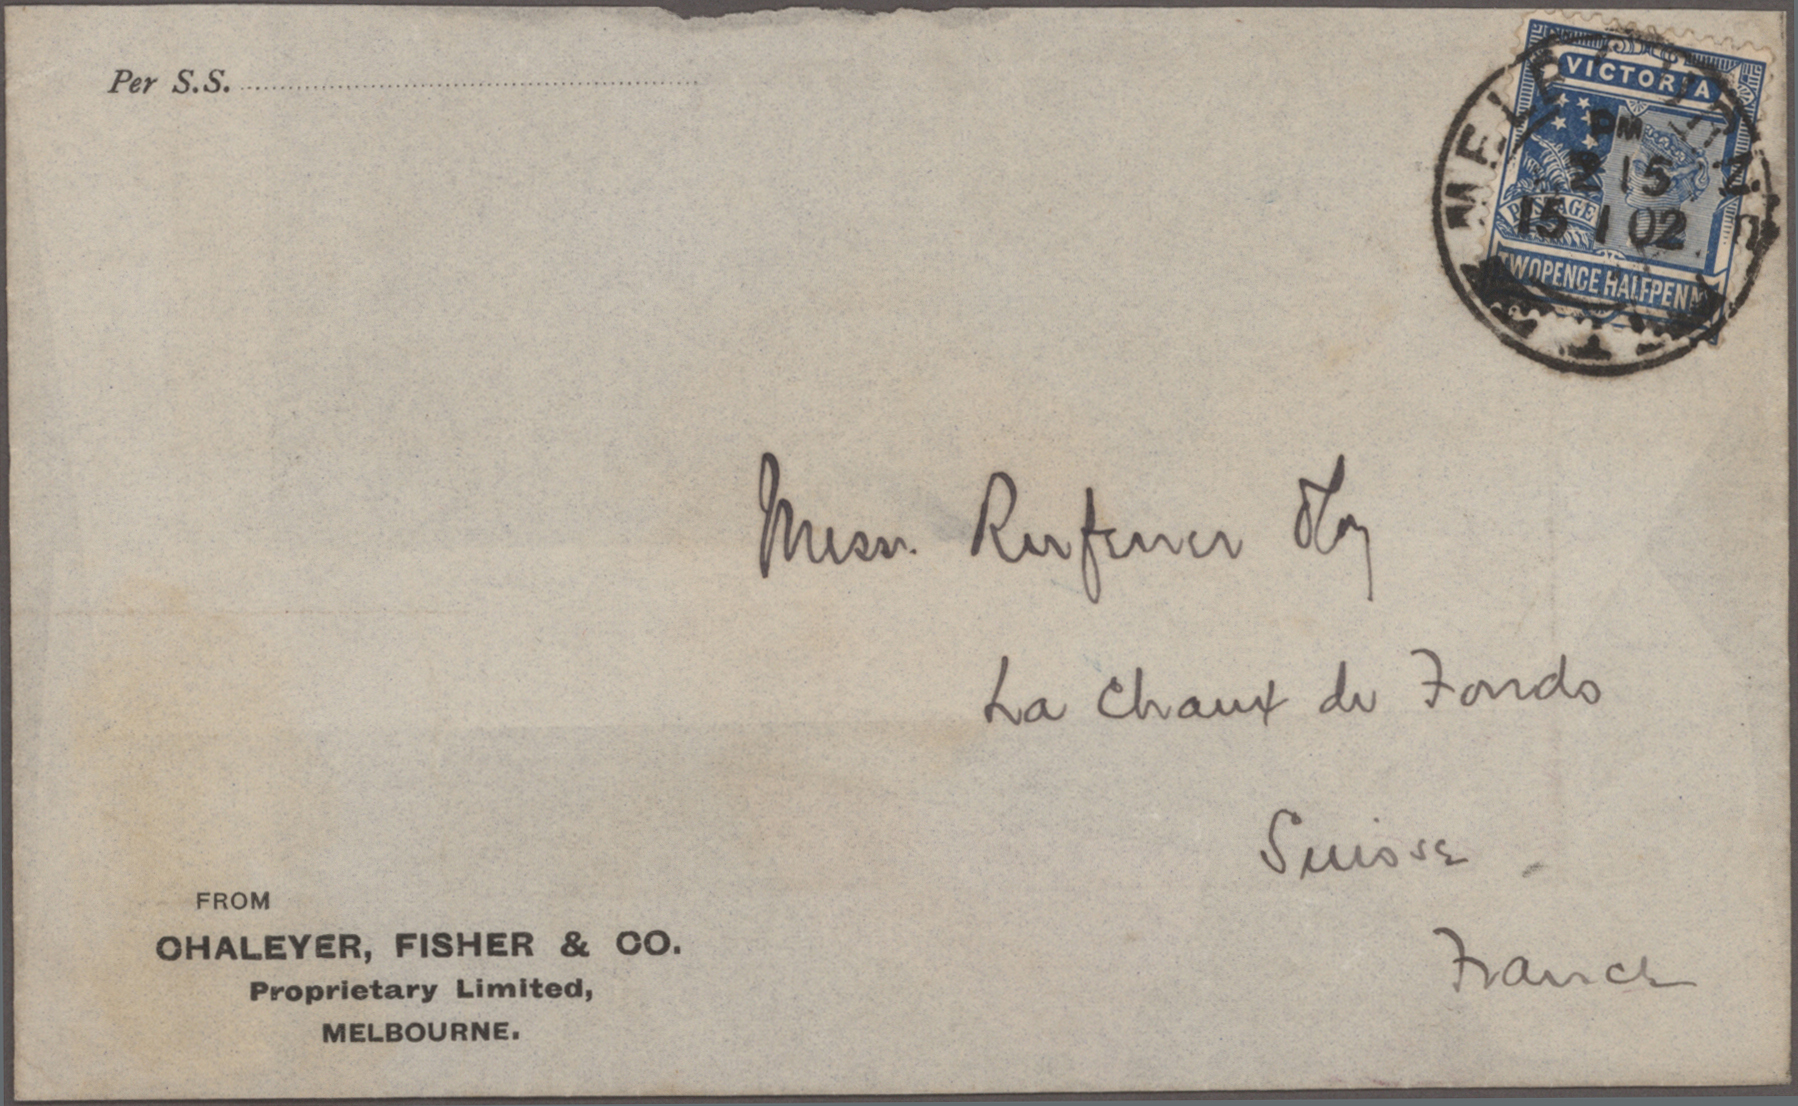 Per S.S.
VICTORIA
POSTAGE
TWOPENCE HALFPENNY
MELBOURNE
PM
2 15
15 1 02
Messr. Rufener
La Chaux de Fonds
Suisse
France
FROM
CHALEYER, FISHER & CO.
Proprietary Limited,
MELBOURNE.